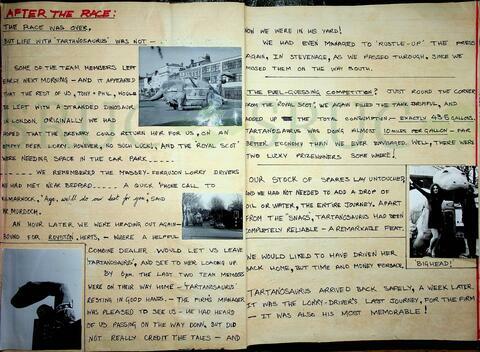 AFTER THE RACE:
THE RACE WAS OVER,
BUT LIFE WITH 'TARTANOSAURUS' WAS NOT - . .
SOME OF THE TEAM MEMBERS LEFT
EARLY NEXT MORNING - AND IT APPEARED
THAT THE REST OF US, TONY + PHIL, WOULD
BE LEFT WITH A STRANDED DINOSAUR
IN LONDON. ORIGINALLY WE HAD
HOPED THAT THE BREWERY COULD RETURN HER FOR US, ON AN
EMPTY BEER LORRY. HOWEVER, NO SUCH LUCK!, AND THE 'ROYAL SCOT'
WERE NEEDING SPACE IN THE CAR PARK .....
..... WE REMEMBERED THE MASSEY-FERGUSON LORRY DRIVERS
WE HAD MET NEAR BEDFORD ..... A QUICK PHONE CALL TO
KILMARNOCK, 'Aye, we'll do our best for you', SAID
MR. MURDOCH.
AN HOUR LATER, WE WERE HEADING OUT AGAIN -
BOUND FOR ROYSTON, HERTS, - WHERE A HELPFUL
COMBINE DEALER WOULD LET US LEAVE
'TARTANOSAURUS', AND SEE TO HER LOADING UP.
BY 6pm THE LAST TWO TEAM MEMBERS
WERE ON THEIR WAY HOME - 'TARTANOSAURUS'
RESTING IN GOOD HANDS. - THE FIRMS MANAGER
WAS PLEASED TO SEE US - HE HAD HEARD
OF US PASSING ON THE WAY DOWN, BUT DID
NOT REALLY CREDIT THE TALES - AND
NOW WE WERE IN HIS YARD!
WE HAD EVEN MANAGED TO 'RUSTLE-UP' THE PRESS
AGAIN, IN STEVENAGE, AS WE PASSED THROUGH, SINCE WE
MISSED THEM ON THE WAY SOUTH.
THE FUEL-GUESSING COMPETITION? JUST ROUND THE CORNER
FROM THE 'ROYAL SCOT', WE AGAIN FILLED THE TANK BRIMFUL, AND
ADDED UP THE TOTAL CONSUMPTION - EXACTLY 43.5 GALLONS.
TARTANOSAURUS WAS DOING ALMOST 10 MILES PER GALLON - FAR
BETTER ECONOMY THAN WE EVER ENVISAGED. WELL, THERE WERE
TWO LUCKY PRIZEWINNERS SOMEWHERE!
OUR STOCK OF SPARES LAY UNTOUCHED,
AND WE HAD NOT NEEDED TO ADD A DROP OF
OIL OR WATER, THE ENTIRE JOURNEY. APART
FROM THE 'SNAGS', TARTANOSAURUS HAD BEEN
COMPLETELY RELIABLE - A REMARKABLE FEAT.
WE WOULD LIKED TO HAVE DRIVEN HER
BACK HOME, BUT TIME AND MONEY FORBADE.
'BIGHEAD!'
TARTANOSAURUS ARRIVED BACK SAFELY, A WEEK LATER.
IT WAS THE LORRY-DRIVER'S LAST JOURNEY, FOR THE FIRM
- IT WAS ALSO HIS MOST MEMORABLE!